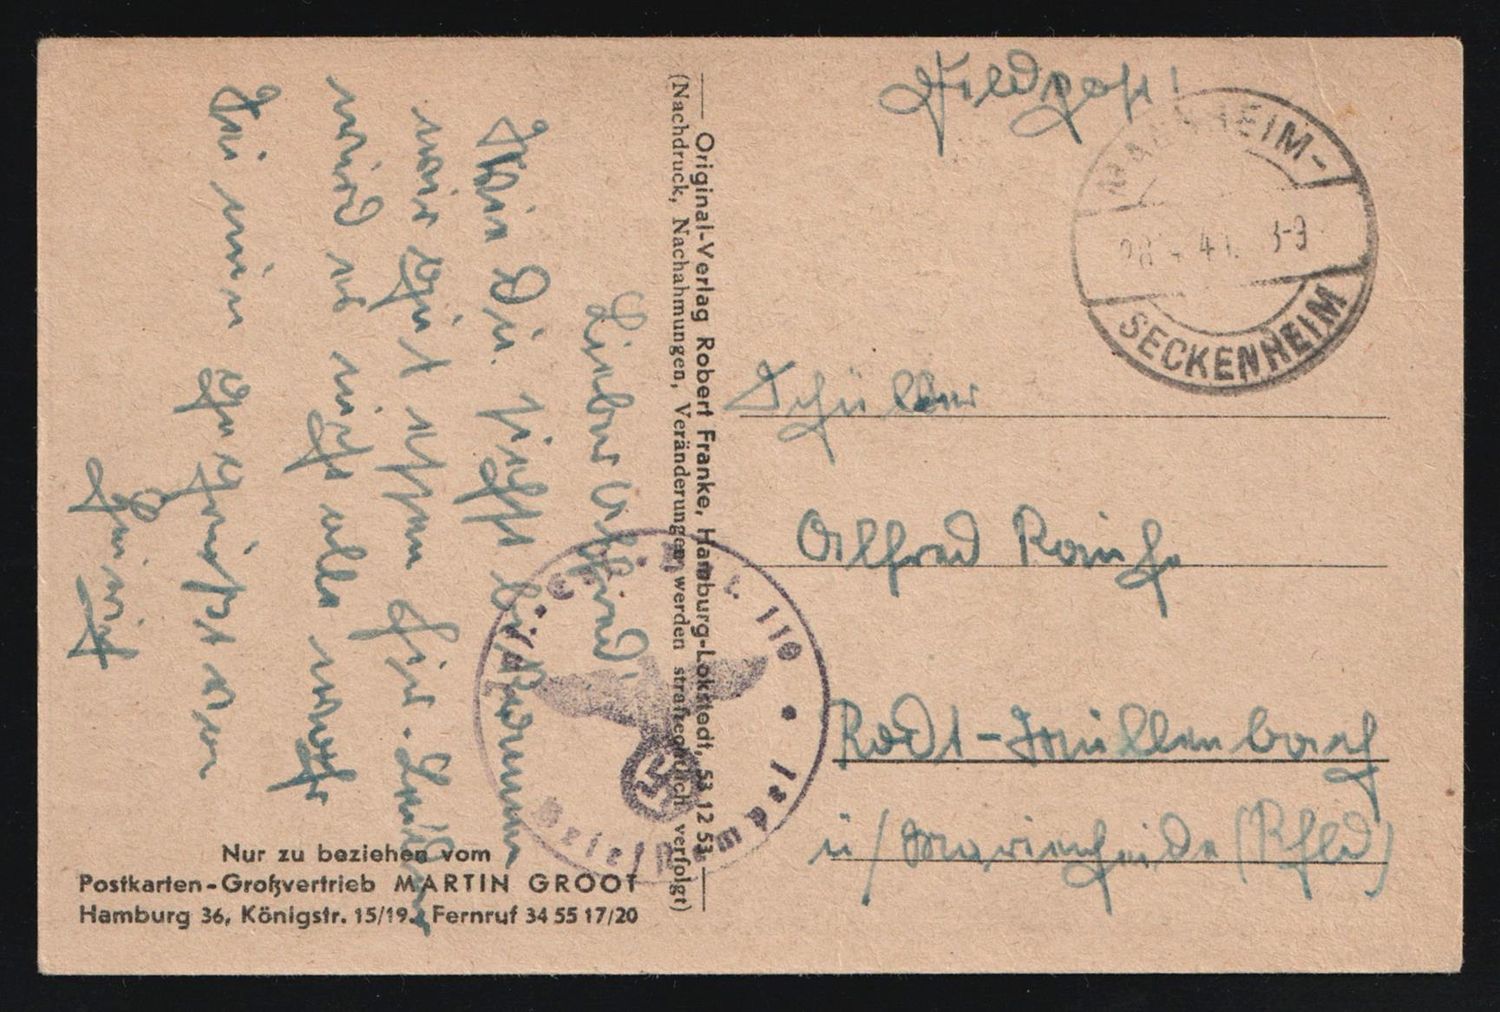 Feldpost!
MANNHEIM-
SECKENHEIM
Schüler
Alfred
Rodt-Müllenbach
ü/Marienheide (Rhld)
Original-Verlag Robert Franke, Hamburg-Lokstedt, 53 12 53
(Nachdruck, Nachahmungen, Veränderungen werden strafrechtlich verfolgt)
Lieber Alfred!
Wie Du siehst bekommen
wir gut essen hier.
wird es nicht alle
Sei nun gegrüßt von
Briefstempel
Nur zu beziehen vom
Postkarten-Großvertrieb MARTIN GROOT
Hamburg 36, Königstr. 15/19. Fernruf 34 55 17/20